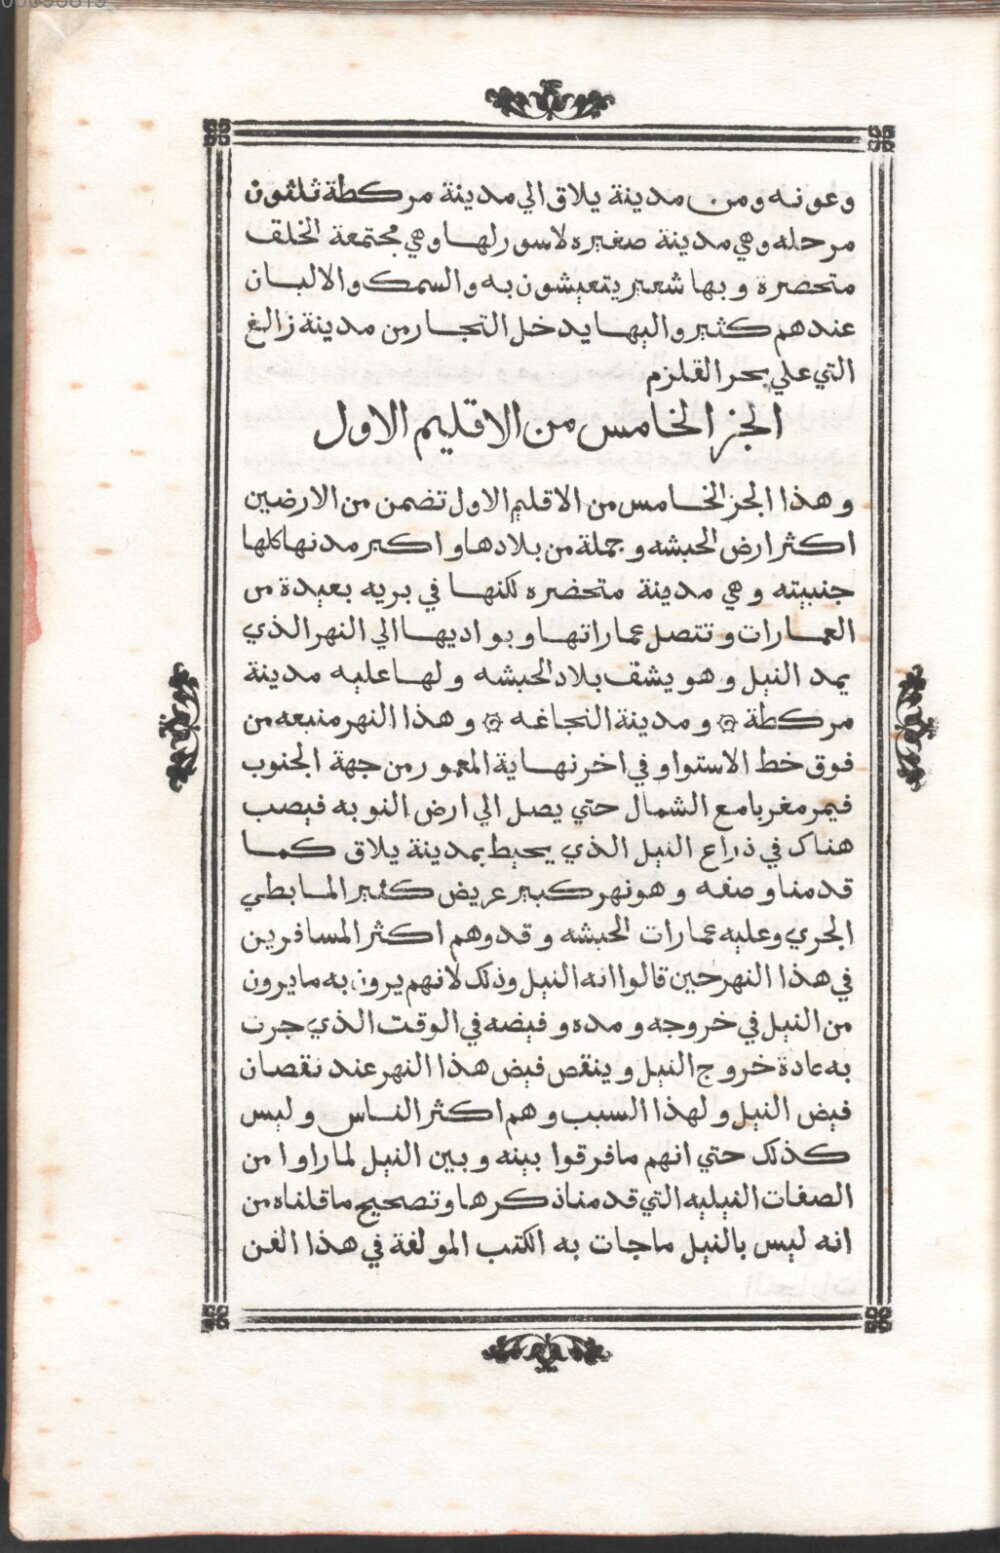 وعونه ومن مدينة يلاق الي مدينة مركطة ثلثون
مرحله وهي مدينة صغيره لاسور لها وهي مجتمعة الخلق
متحضرة وبها شعير يتعيشون به والسمك والالبان
عندهم كثير واليها يدخل التجار من مدينة زالغ
التي علي بحر القلزم
الجز الخامس من الاقليم الاول
وهذا الجز الخامس من الاقليم الاول تضمن من الارضين
اكثر ارض الحبشه وجملة من بلادها واكبر مدنها كلها
جنبيته وهي مدينة متحضره لكنها في بريه بعيدة من
العمارات وتتصل عماراتها وبواديها الي النهر الذي
يمد النيل وهو يشق بلاد الحبشه ولها عليه مدينة
مركطة ۞ ومدينة النجاغه ۞ وهذا النهر منبعه من
فوق خط الاستوا وفي اخر نهاية المعمور من جهة الجنوب
فيمر مغربا مع الشمال حتي يصل الي ارض النوبه فيصب
هناك في ذراع النيل الذي يحيط بمدينة يلاق كما
قدمنا وصفه وهو نهر كبير عريض كثير الما بطي
الجري وعليه عمارات الحبشه وقد وهم اكثر المسافرين
في هذا النهر حين قالوا انه النيل وذلك لانهم يرون به ما يرون
من النيل في خروجه ومده وفيضه في الوقت الذي جرت
به عادة خروج النيل وينقص فيض هذا النهر عند نقصان
فيض النيل ولهذا السبب وهم اكثر الناس وليس
كذلك حتي انهم ما فرقوا بينه وبين النيل لما راوا من
الصفات النيليه التي قدمنا ذكرها وتصحيح ما قلناه من
انه ليس بالنيل ما جات به الكتب المولفة في هذا الفن